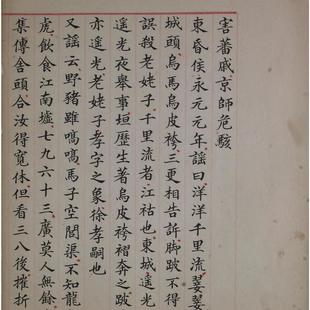 害蕃戚京師危駭
東昏侯永元元年謠曰洋洋千里流翣翣
城頭烏馬烏皮袴三更相告訴脚跛不得
誤殺老姥子千里流者江祜也東城遥光
遥光夜舉事垣歷生著烏皮袴褶奔之跛
亦遥光老姥子孝字之象徐孝嗣也
又謡云野豬雖嗃嗃馬子空閭渠不知龍
虎飲食江南墟七九六十三廣莫人無餘
集傳舍頭合汝得寬休但看三八後摧折